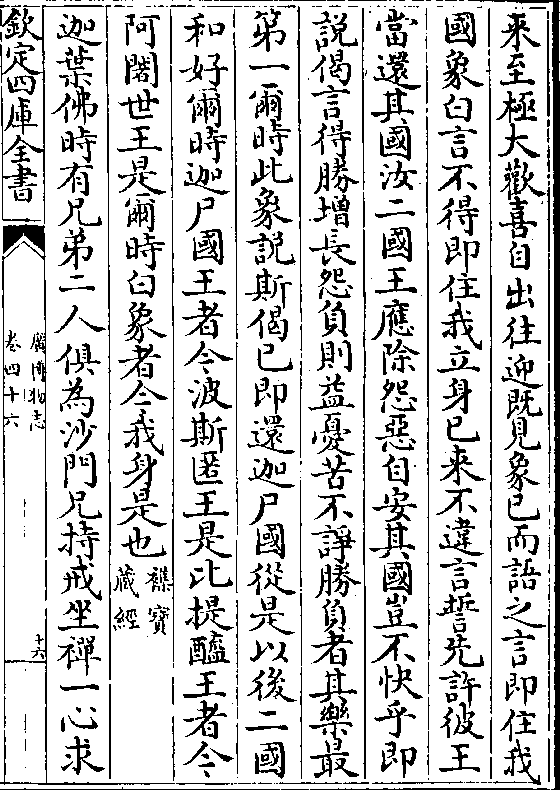 來至極大歡喜自出往迎既見象已而語之言即住我
國象白言不得即住我立身已來不違言誓先許彼王
當還其國汝二國王應除怨惡自安其國豈不快乎即
說偈言得勝增長怨負則益憂苦不諍勝負者其樂最
第一爾時此象說斯偈已即還迦尸國從是以後二國
和好爾時迦尸國王者今波斯匿王是比提醯王者今
阿闍世王是爾時白象者今我身是也襍寶藏經
迦葉佛時有兄弟二人俱為沙門兄持戒坐禪一心求
欽定四庫全書
廣博物志
卷四十六
十六